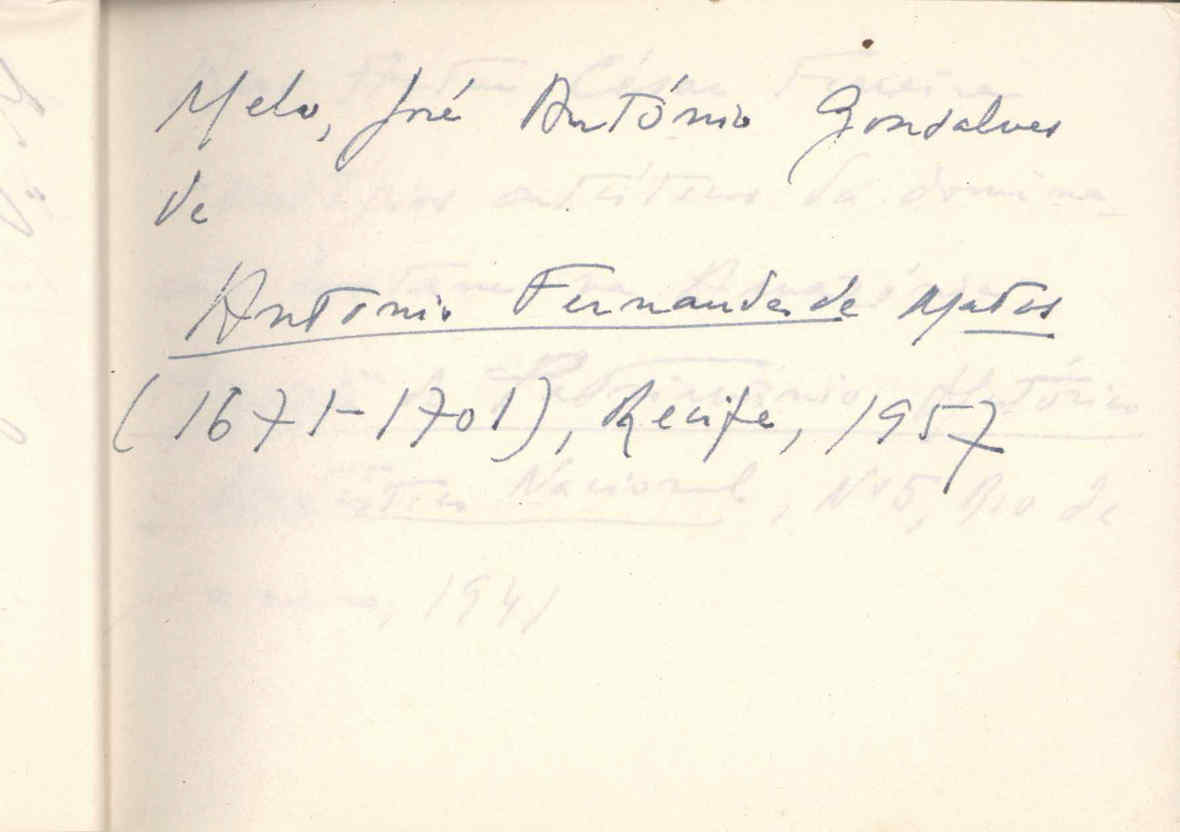 Melo, José António Gonsalves
de
António Fernandes de Matos
(1671-1701), Recife, 1957